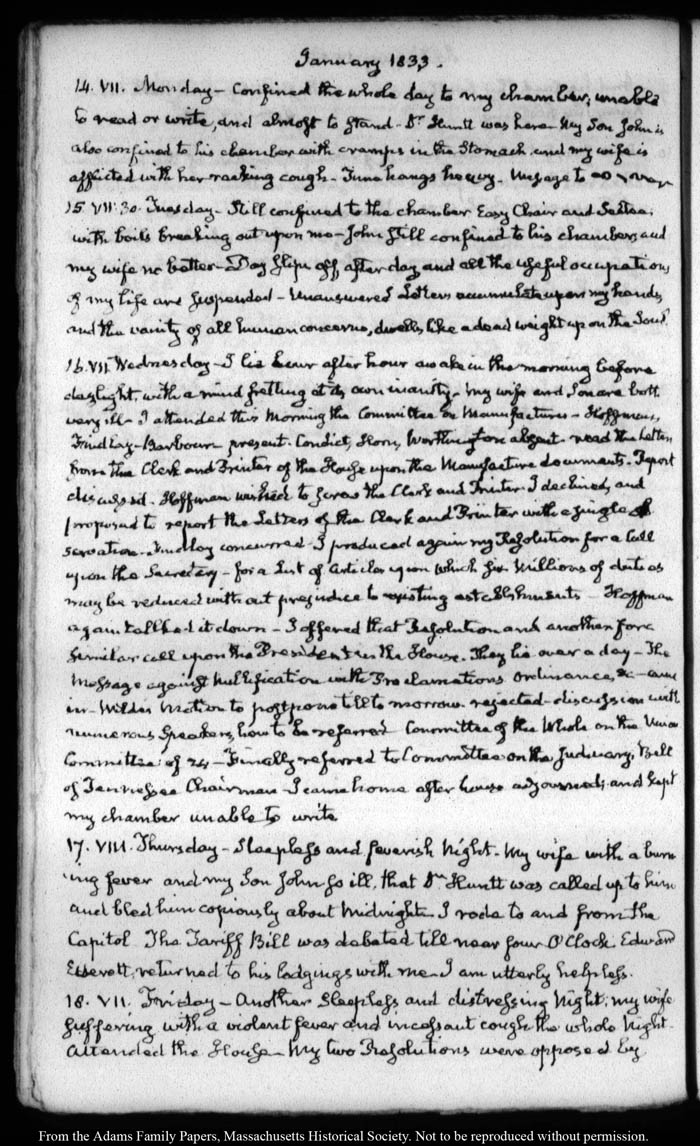 January 1833.
14. VII. Monday – Confined the whole day to my chamber; unable
to read or write, and almost to stand – Dr Huntt was here – My Son John is
also confined to his chamber with cramps in the Stomach and my wife is
afflicted with her racking cough – Time hangs heavy –
15. VII:30. Tuesday – Still confined to the chamber Easy Chair and Settee;
with boils breaking out upon me – John still confined to his chamber, and
my wife no better – Day slips off after day and all the useful occupations
of my life are suspended – Unanswered Letters accumulate upon my hands,
and the vanity of all human concerns, dwells like a dead weight upon the Soul.
16. VII. Wednesday – I lie hour after hour awake in the morning before
daylight, with a mind fretting at its own inanity – My wife and Son are both
very ill – I attended this Morning the Committee on Manufactures – Hoffman,
Findlay – Barbour present. Condict, Horn, Worthington absent – read the Letters
from the Clerk and Printer of the House upon the Manufacture documents – Report
discussed. Hoffman wished to the Clerk and Printer I declined, and
proposed to report the Letters of the Clerk and Printer with a single
servation – Findlay concurred – I produced again my Resolution for a Call
upon the Secretary – for a List of Articles upon which Six Millions of duties
may be reduced without prejudice to existing establishments – Hoffman
again talked it down – I offered that Resolution and another for a
similar call upon the President in the House. They lie over a day – The
Message against Nullification with Proclamations Ordinances, &c – came
in – Wilde's Motion to postpone till to morrow rejected – discussion with
numerous Speakers, how to be referred Committee of the Whole on the Union
Committee of 24 – Finally referred to Committee on the Judiciary. Bell
of Tennessee Chairman – I came home after house adjourned; and kept
my chamber unable to write
17. VIII. Thursday – Sleepless and feverish Night – My wife with a burn
ing fever and my Son John so ill, that Dr Huntt was called up to him
and bled him copiously about Midnight – I rode to and from the
Capitol The Tariff Bill was debated till near four O'Clock Edward
Everett, returned to his lodgings with me – I am utterly helpless.
18. VII. Friday – Another Sleepless and distressing Night; my wife
suffering with a violent fever and incessant cough the whole Night –
attended the House – My two Resolutions were opposed by
From the Adams Family Papers, Massachusetts Historical Society. Not to be reproduced without permission.